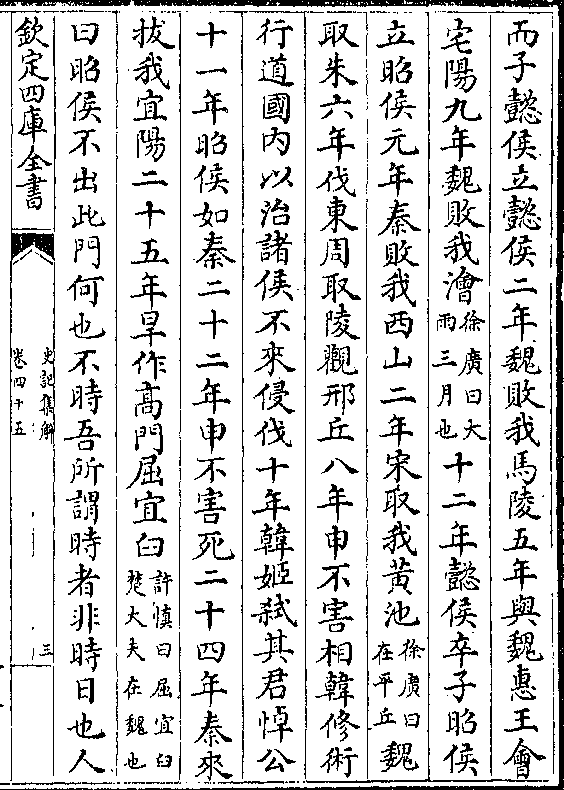 而子懿侯立懿侯二年魏敗我馬陵五年與魏惠王會
宅陽九年魏敗我澮徐廣曰大雨三月也十二年懿侯卒子昭侯
立昭侯元年秦敗我西山二年宋取我黄池徐廣曰在平丘魏
取朱六年伐東周取陵觀邢丘八年申不害相韓修術
行道國内以治諸侯不來侵伐十年韓姬弑其君悼公
十一年昭侯如秦二十二年申不害死二十四年秦來
拔我宜陽二十五年旱作高門屈宜臼許慎曰屈宜臼楚大夫在魏也
曰昭侯不出此門何也不時吾所謂時者非時日也人
欽定四庫全書
史記集解
卷四十五
三